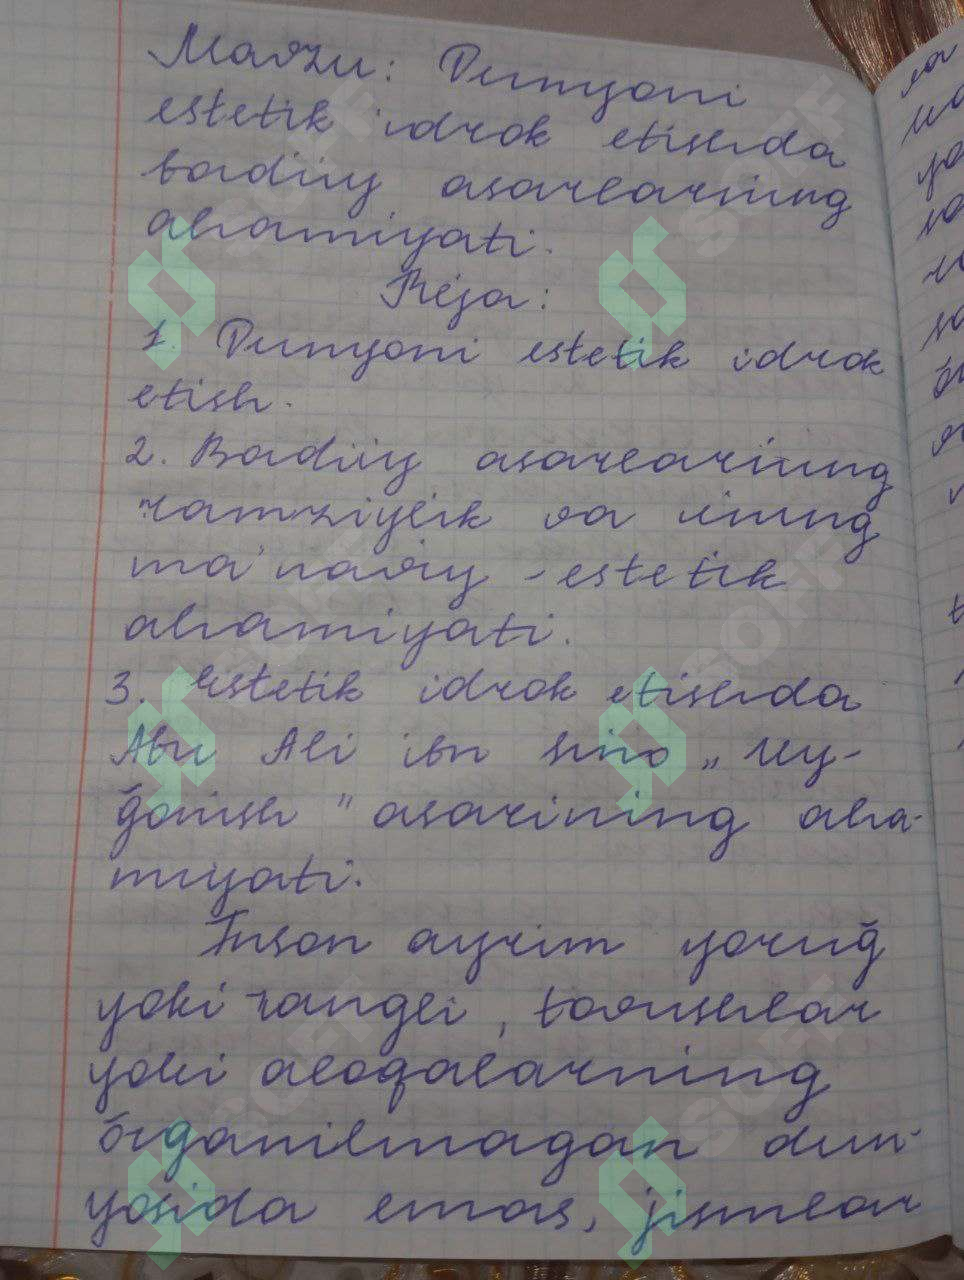 Mavzu: Dunyoni
estetik idrok etishda
badiiy asarlarning
ahamiyati.
Reja:
1. Dunyoni estetik idrok
etish.
2. Badiiy asarlarning
ramziylik va uning
ma'naviy - estetik
ahamiyati.
3. Estetik idrok etishda
Abu Ali ibn Sino „Uy-
ğonish" asarining aha-
miyati.
Inson ayrim yoruğ
yoki rangli, tovushlar
yoki aloqalarning
ŏrganilmagan dun-
yosida emas, jismlar
SOFF
SOFF
SOFF
SOFF
SOFF
SOFF